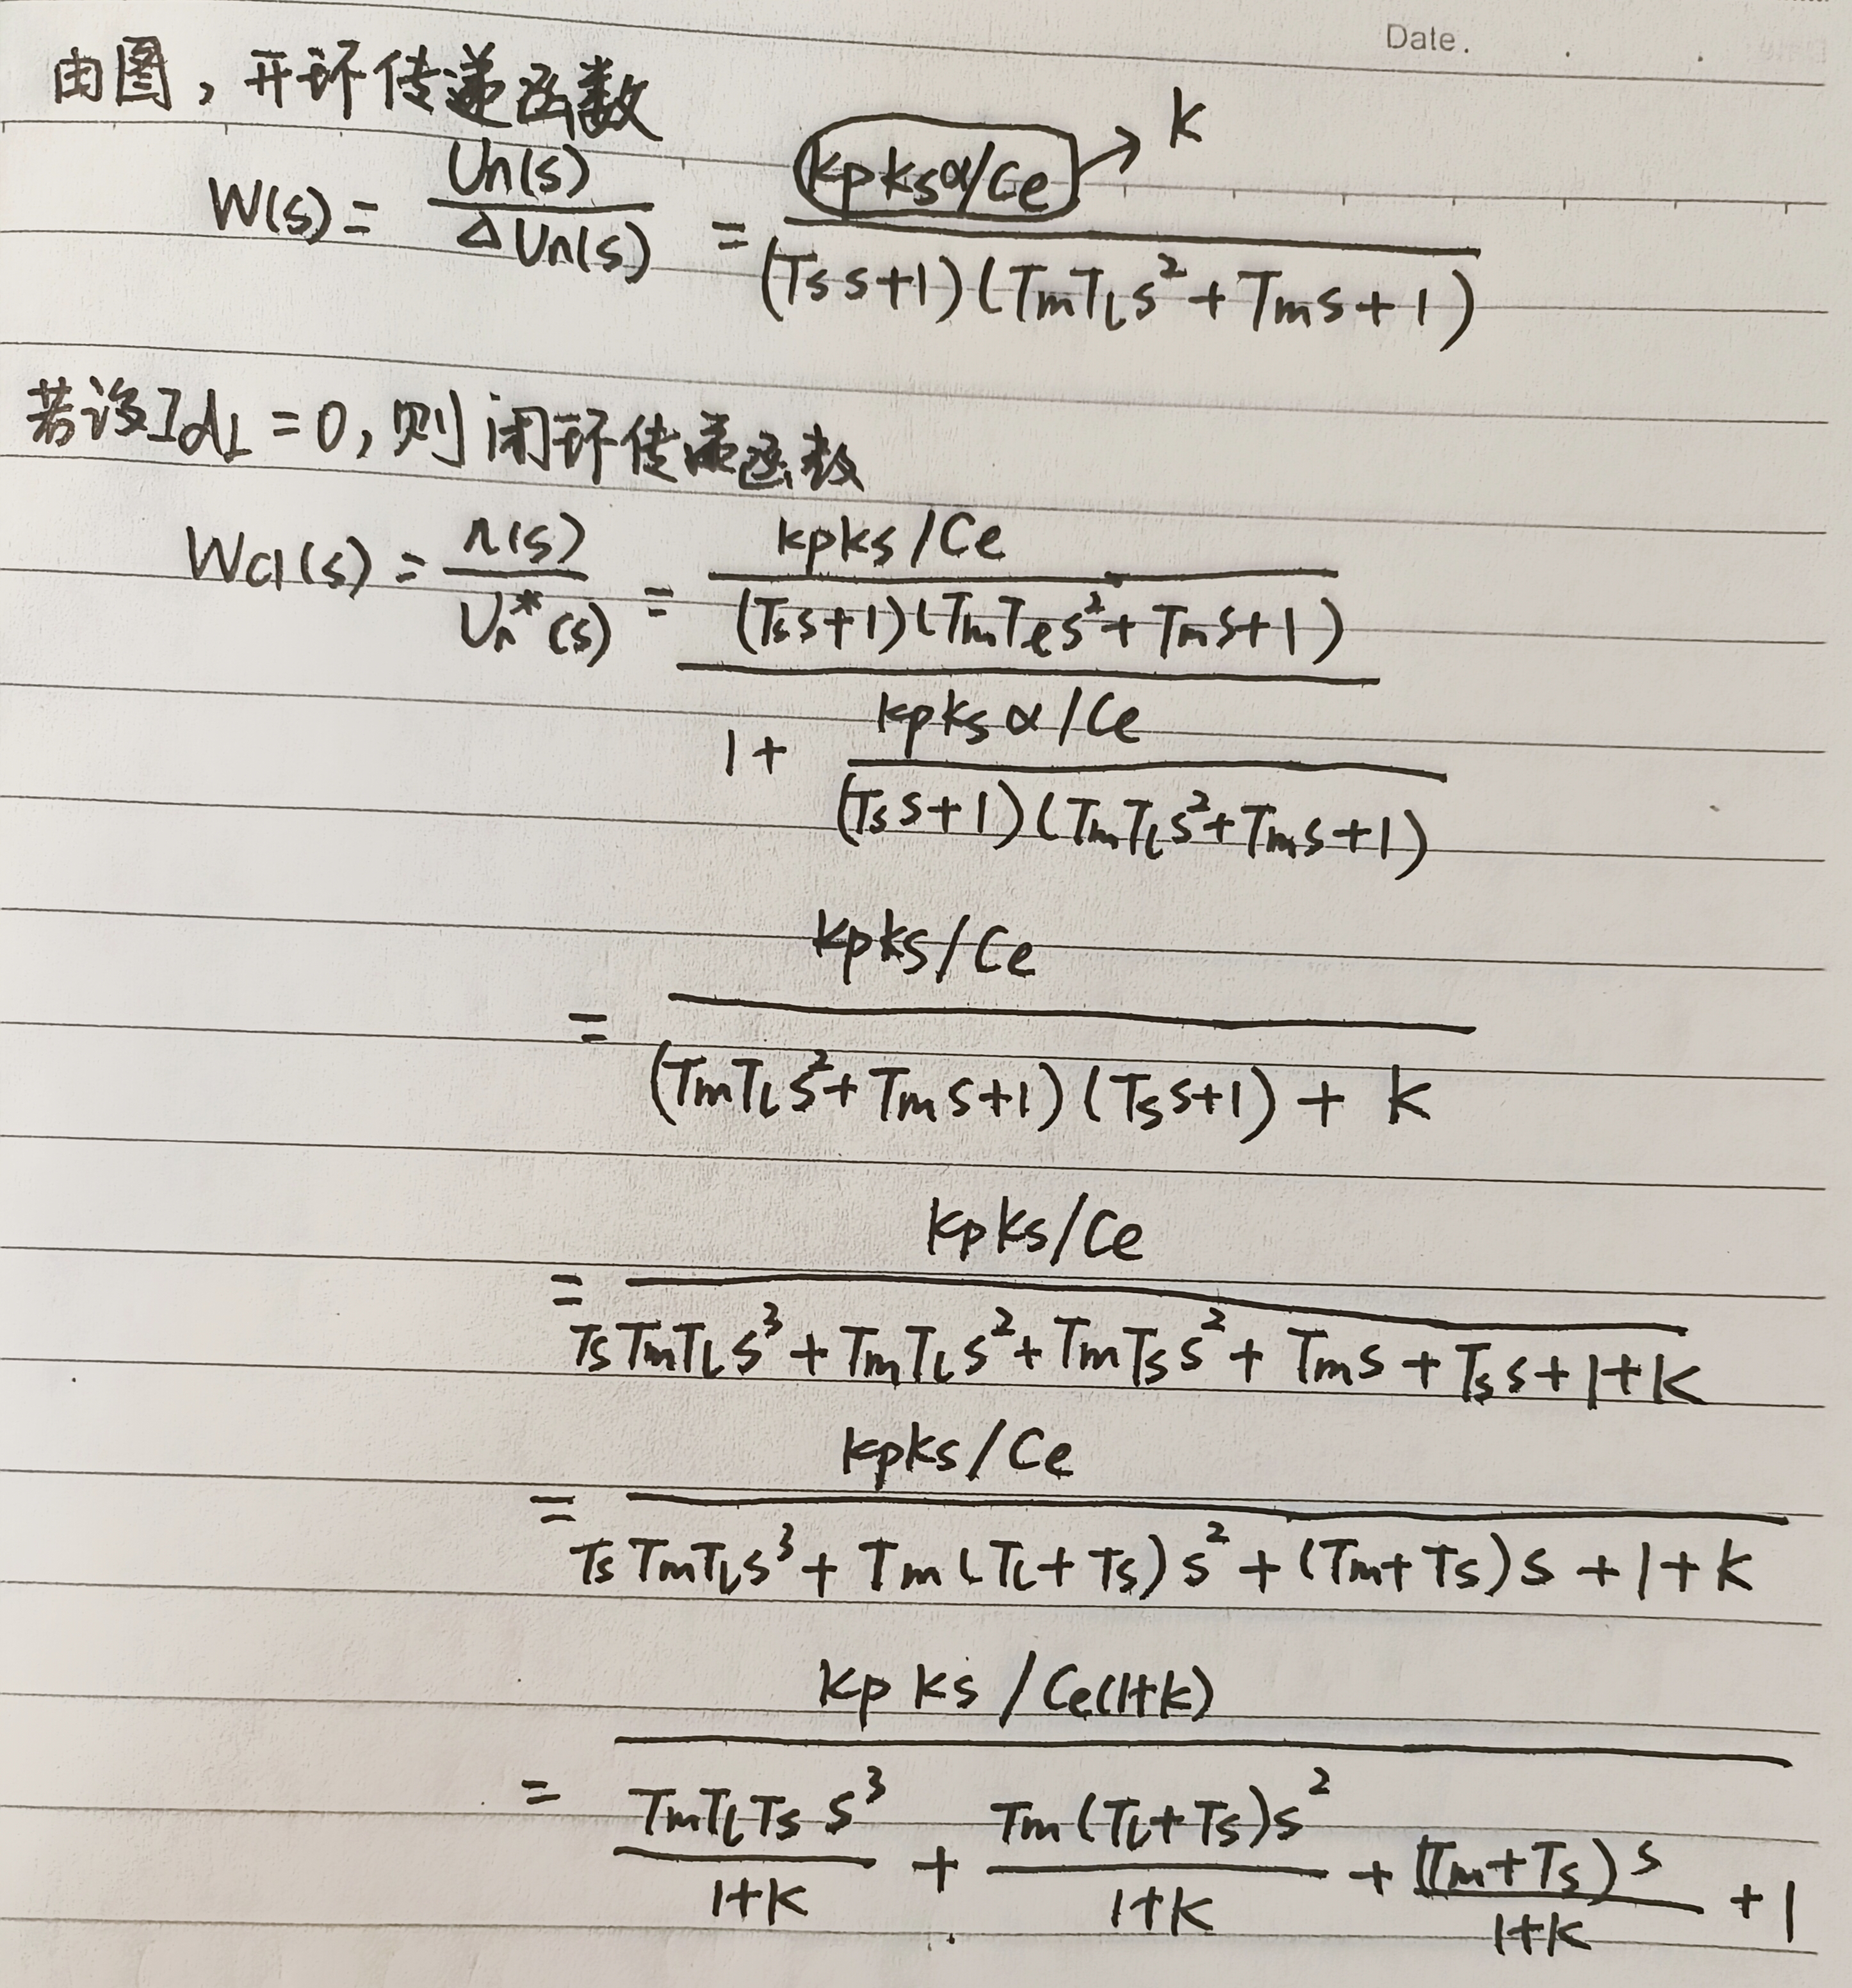 Date.
由图，开环传递函数
W(s) = Un(s) / ΔUn(s) = (kpksα/Ce) / ((Tss+1)(TmTls²+Tms+1)) → k
若设IdL=0，则闭环传递函数
Wcl(s) = n(s) / Un*(s) = (kpks/Ce / ((Tss+1)(TmTls²+Tms+1))) / (1+ kpksα/Ce / ((Tss+1)(TmTls²+Tms+1)))
= (kpks/Ce) / ((TmTls²+Tms+1)(Tss+1)+k)
= (kpks/Ce) / (TsTmTls³+TmTls²+TmTss²+Tms+Tss+1+k)
= (kpks/Ce) / (TsTmTls³+Tm(Tl+Ts)s²+(Tm+Ts)s+1+k)
= (kpks/Ce(1+k)) / (TmTlTss³/(1+k) + Tm(Tl+Ts)s²/(1+k) + (Tm+Ts)s/(1+k) + 1)